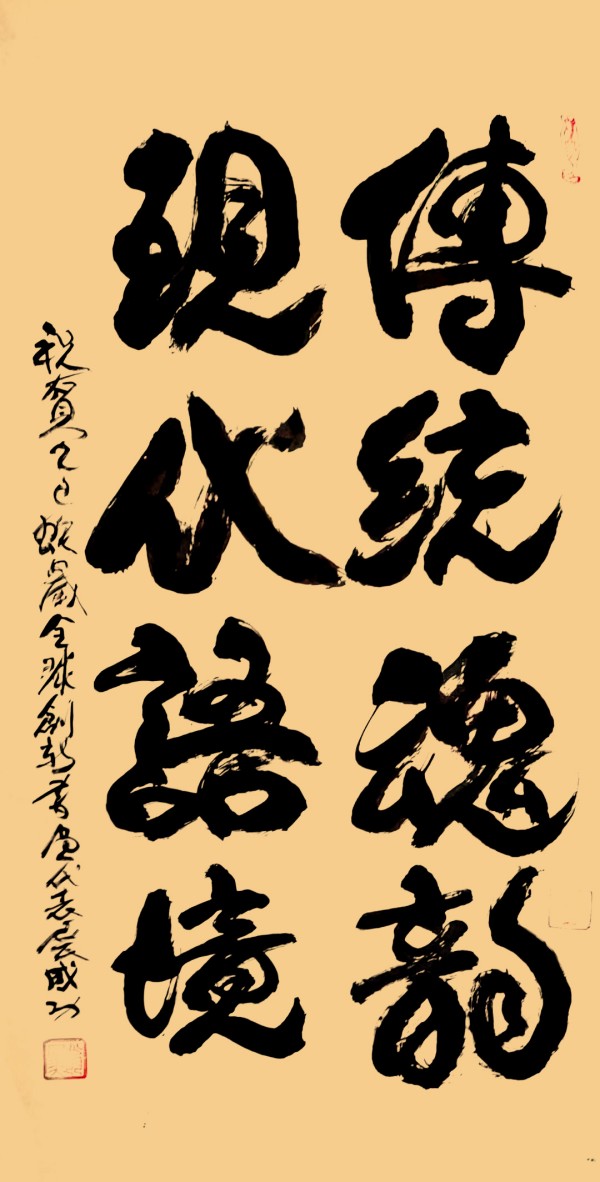 傳統魂韵
現代語境
祝賀乙巳蛇歲全球創新書畫代表展成功